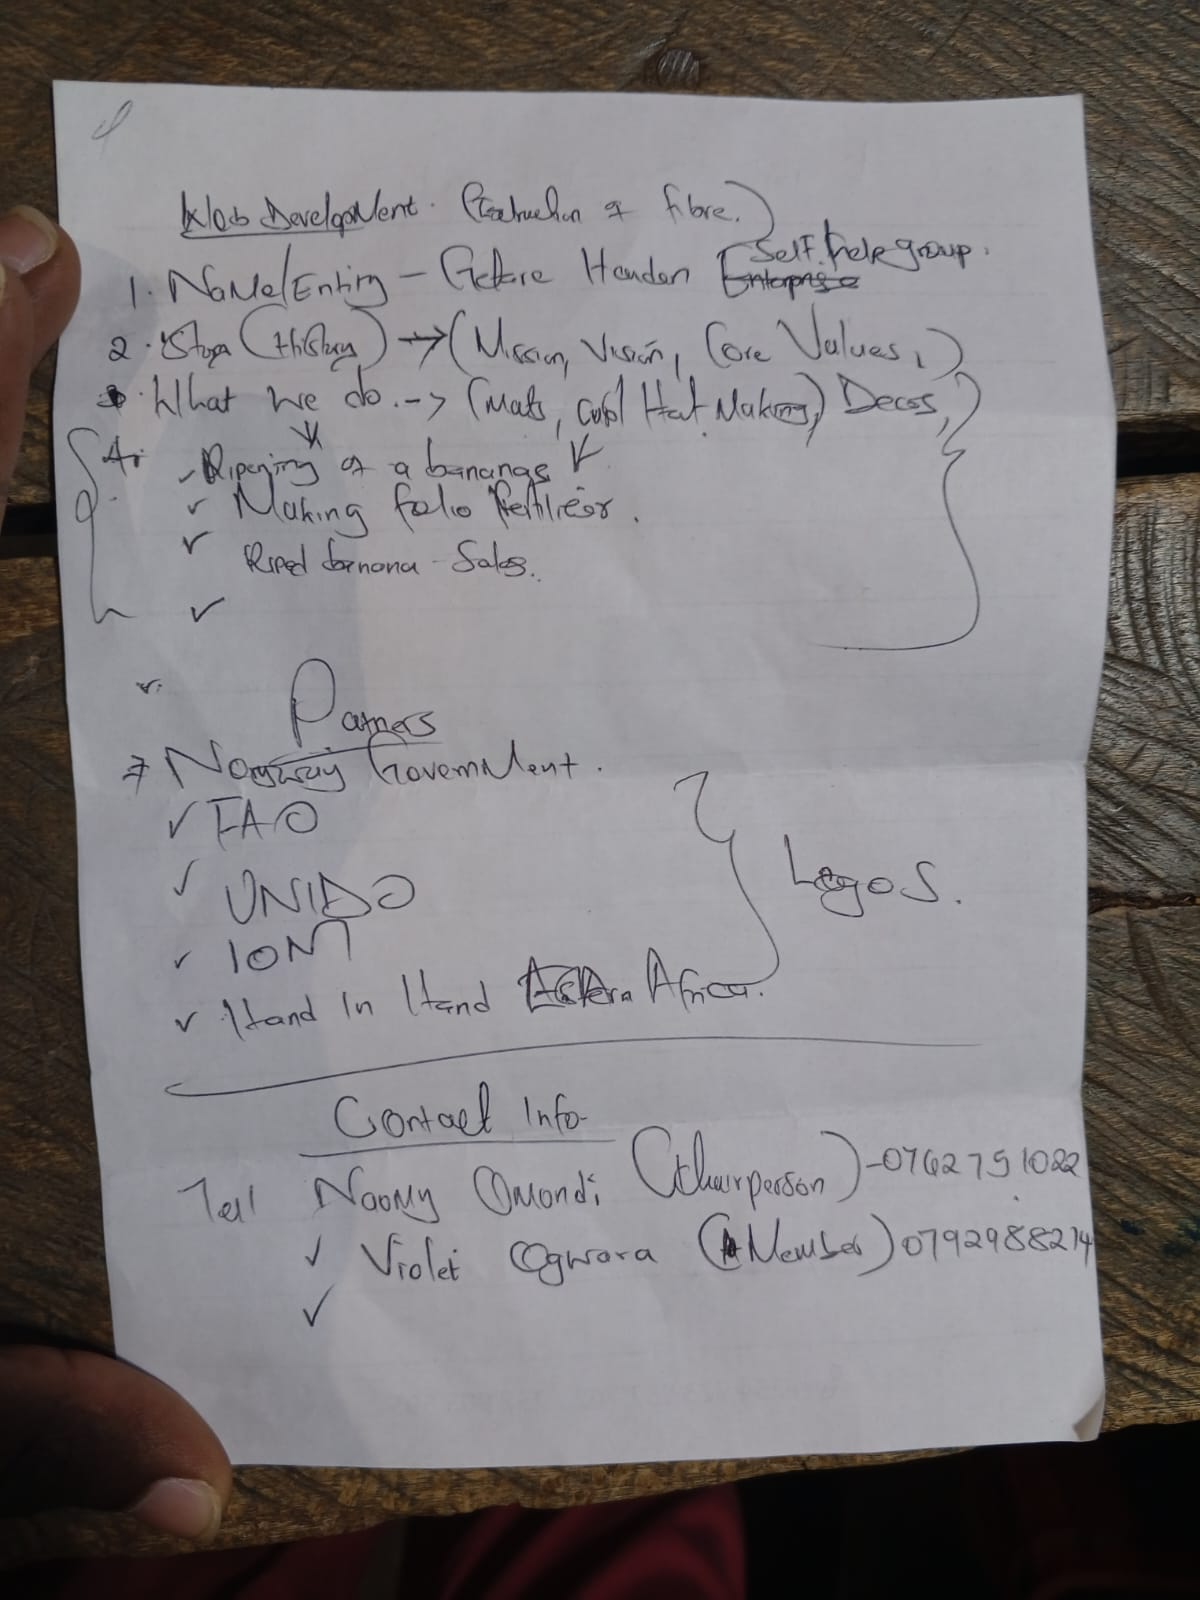 Web Development. (Extraction of fibre.)
1. Name/Entiry - Handen Self help group. Enterprise
2. Story (History) → (Mission, Vision, Core Values,)
3. What we do. -> (Mats, Hat Making) Decos,
4. Ripening of a bananas
Making folio Fertilizer.
Riped banana - Sales.
Patners
Norway Government.
FAO
UNIDO
IOM
Logos.
Hand In Hand Eastern Africa.
Contact Info
Tel Naomy Omondi (Chairperson) - 0762751022
Violet Ogwora (Member) 0792988214